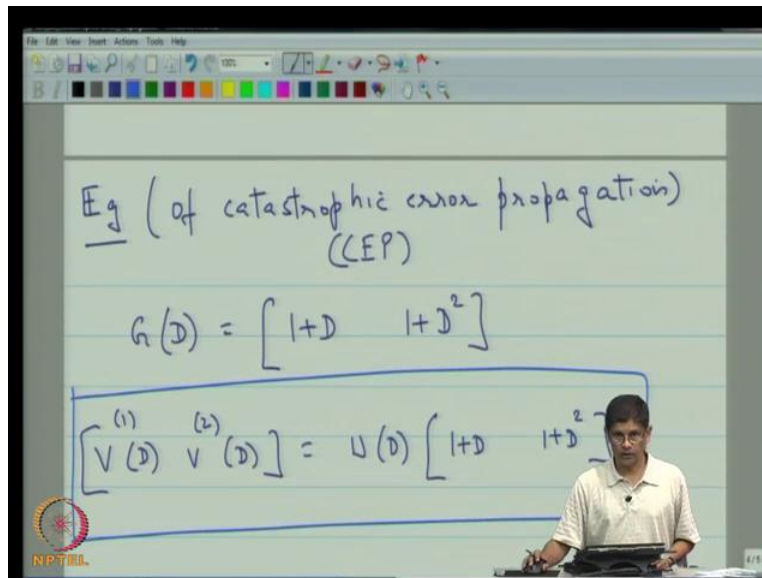 File Edit View Insert Actions Tools Help
Eg (of catastrophic error propagation)
(CEP)
G(D) = [1+D 1+D²]
[V⁽¹⁾(D) V⁽²⁾(D)] = U(D) [1+D 1+D²]
NPTEL
4/5